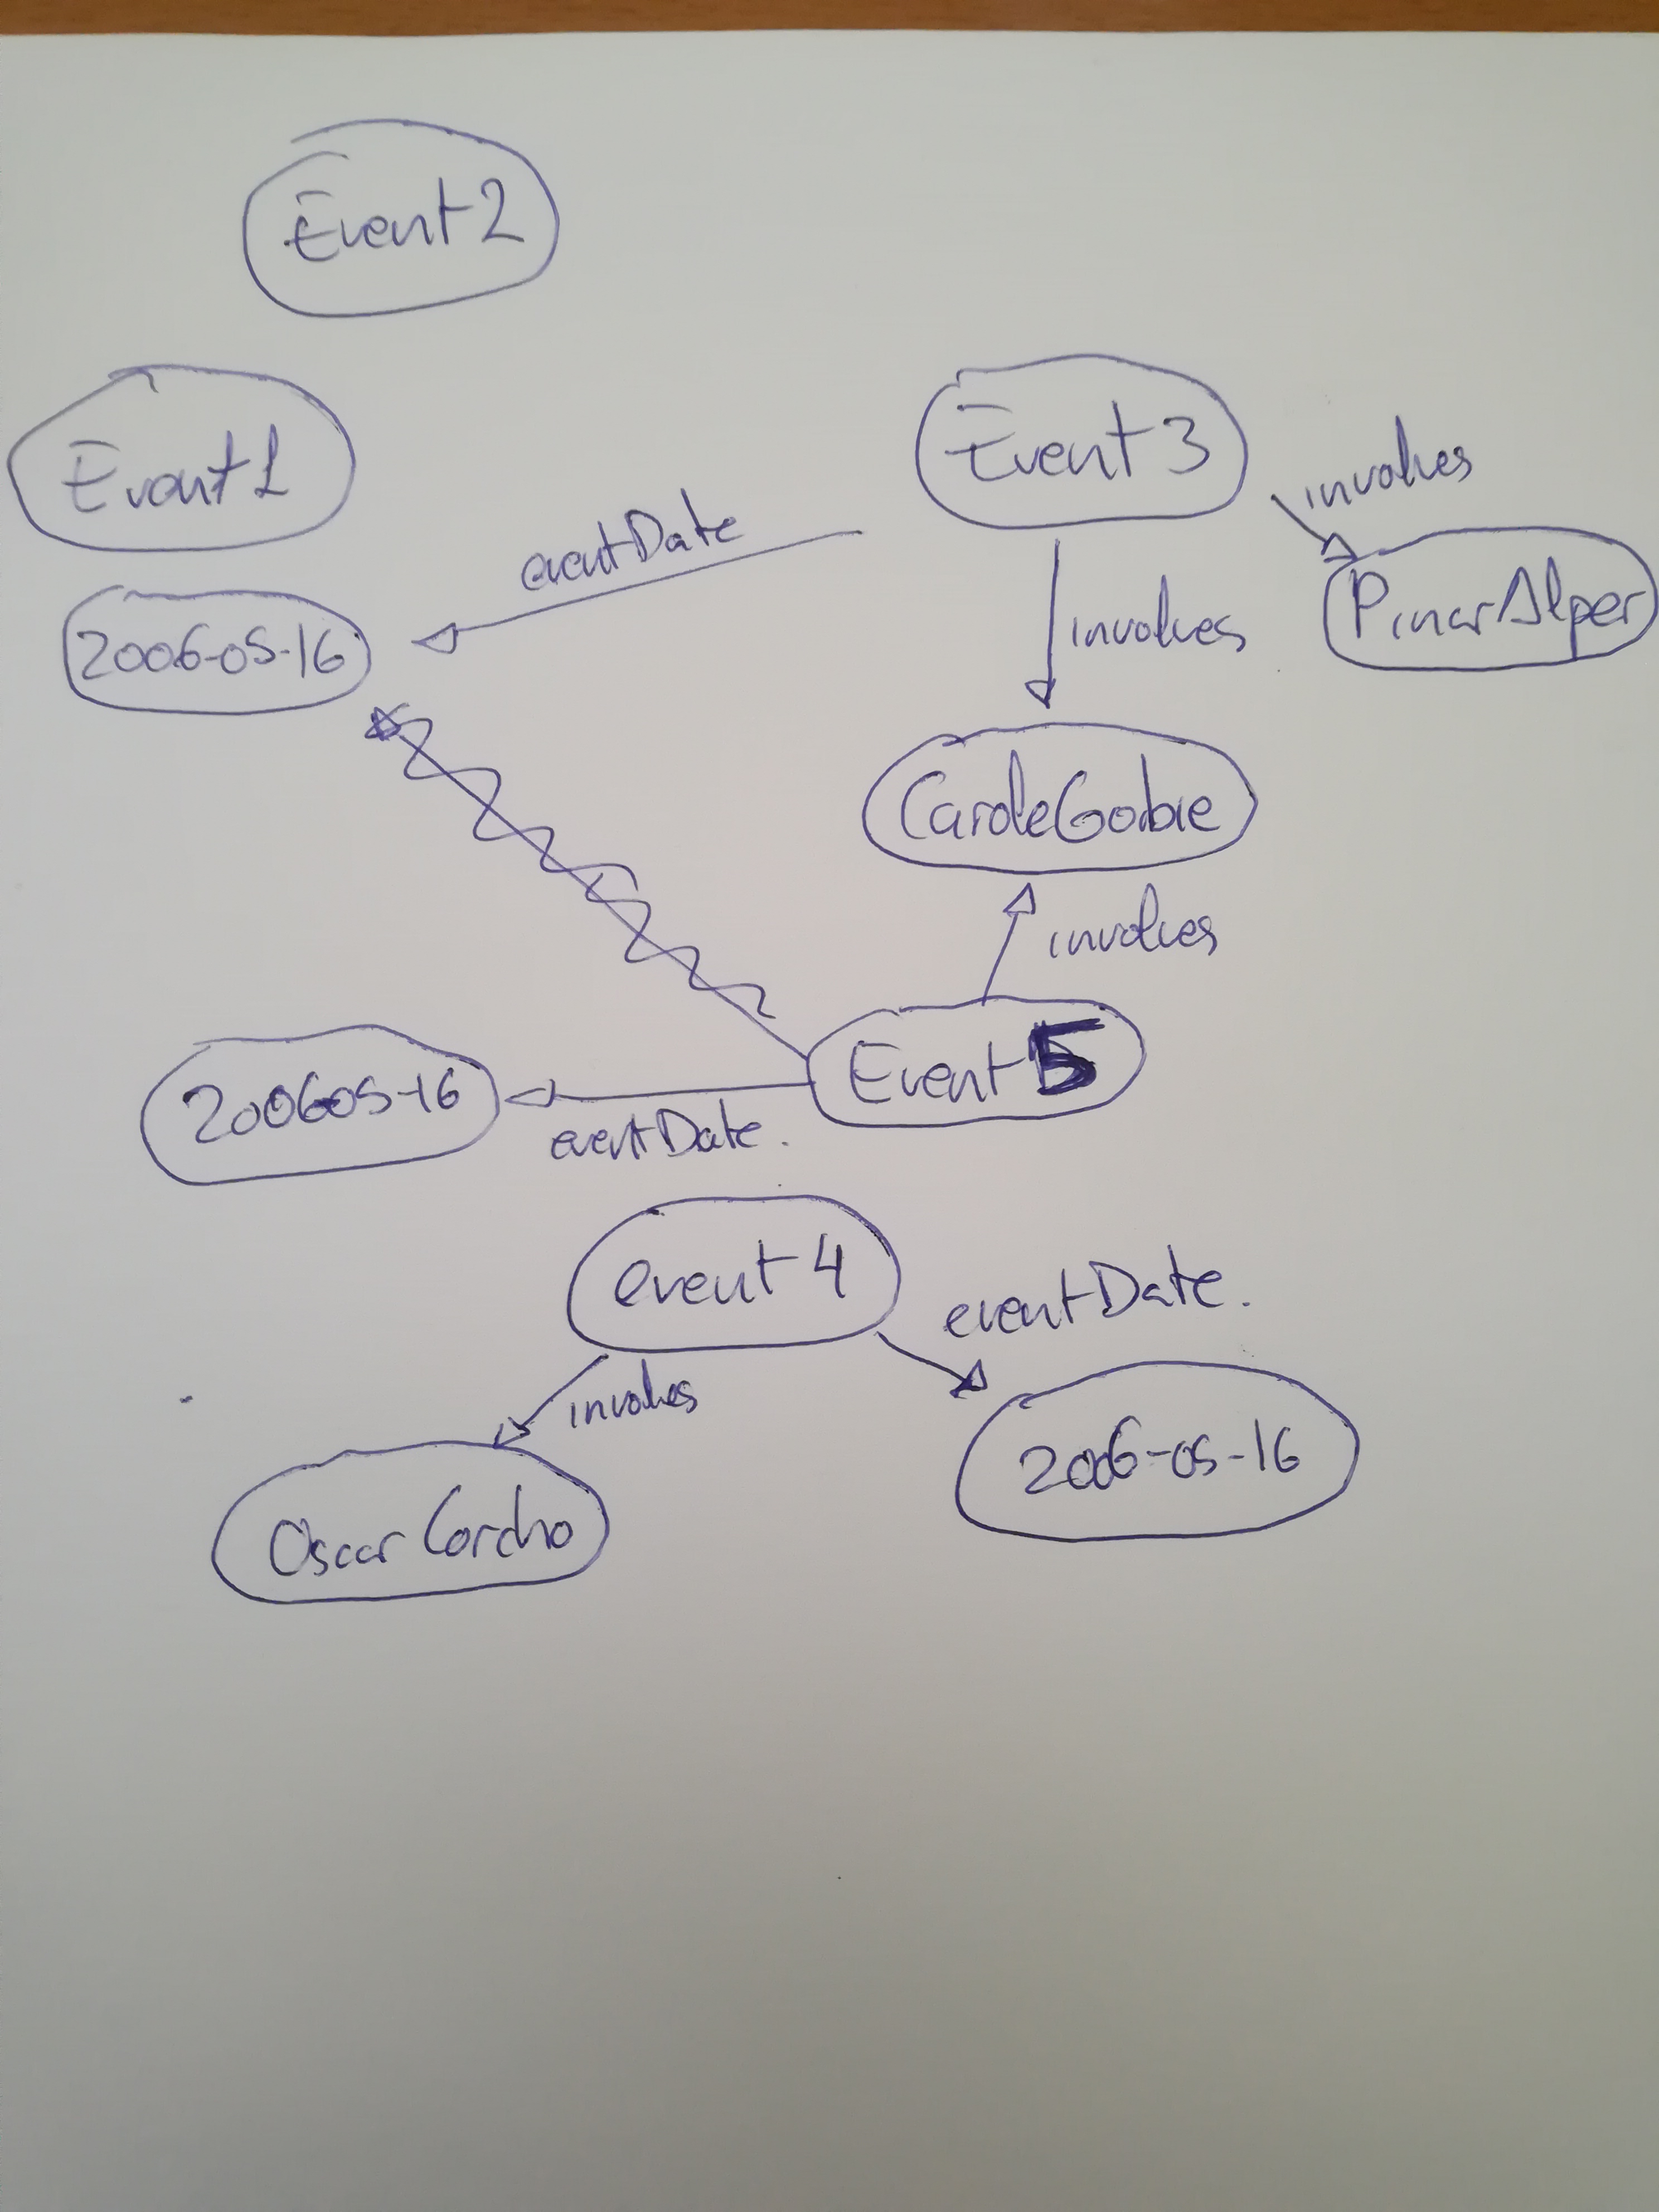 Event 2
Event 1
Event 3
involves
eventDate
PinarAlper
2006-05-16
involves
CaroleGoble
involves
Event 5
200605-16
eventDate.
event 4
eventDate.
involves
2006-05-16
Oscar Corcho